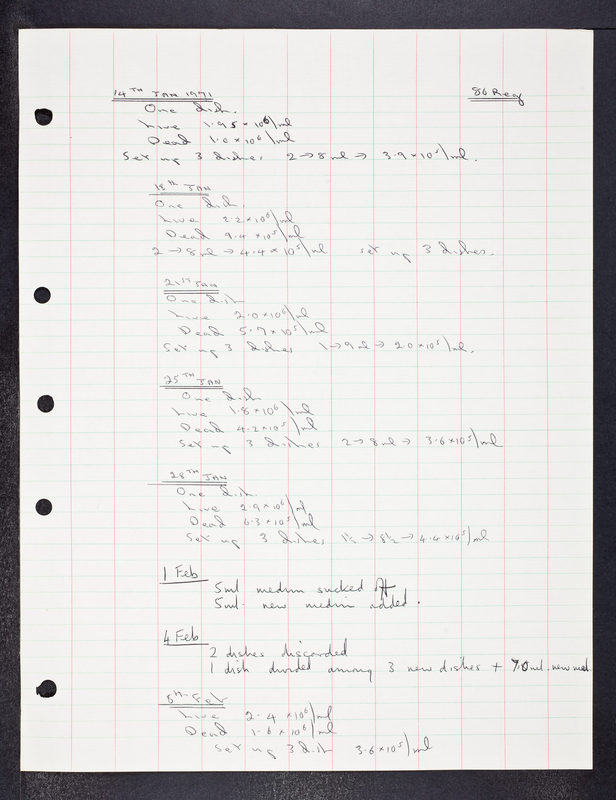 14TH JAN 1971 86 Reg
One dish.
Live 1.95 × 10⁶/ml
Dead 1.0 × 10⁶/ml
Set up 3 dishes 2→8 ml → 3.9 × 10⁵/ml.
18TH JAN
One dish.
Live 2.2 × 10⁶/ml
Dead 9.4 × 10⁵/ml
2→8 ml → 4.4 × 10⁵/ml set up 3 dishes.
21ST JAN
One dish
Live 2.0 × 10⁶/ml
Dead 5.7 × 10⁵/ml
Set up 3 dishes 1→9 ml → 2.0 × 10⁵/ml.
25TH JAN
One dish
Live 1.8 × 10⁶/ml
Dead 4.2 × 10⁵/ml
Set up 3 dishes 2→8 ml → 3.6 × 10⁵/ml
28TH JAN
One dish.
Live 2.9 × 10⁶/ml
Dead 6.3 × 10⁵/ml
Set up 3 dishes 1½ → 8½ → 4.4 × 10⁵/ml
1 Feb
5ml medium sucked off
5ml. new medium added.
4 Feb
2 dishes discarded
1 dish divided among 3 new dishes + 7.0 ml. new med.
5th Feb
Live 2.4 × 10⁶/ml
Dead 1.6 × 10⁶/ml
Set up 3 dish 3.6 × 10⁵/ml